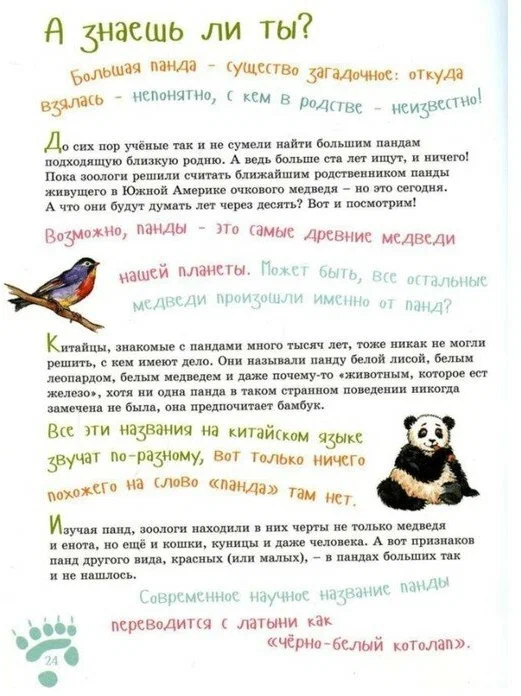 А знаешь ли ты?
Большая панда – существо загадочное: откуда
взялась – непонятно, с кем в родстве – неизвестно!
До сих пор учёные так и не сумели найти большим пандам
подходящую близкую родню. А ведь больше ста лет ищут, и ничего!
Пока зоологи решили считать ближайшим родственником панды
живущего в Южной Америке очкового медведя – но это сегодня.
А что они будут думать лет через десять? Вот и посмотрим!
Возможно, панды – это самые древние медведи
нашей планеты. Может быть, все остальные
медведи произошли именно от панд?
Китайцы, знакомые с пандами много тысяч лет, тоже никак не могли
решить, с кем имеют дело. Они называли панду белой лисой, белым
леопардом, белым медведем и даже почему-то «животным, которое ест
железо», хотя ни одна панда в таком странном поведении никогда
замечена не была, она предпочитает бамбук.
Все эти названия на китайском языке
звучат по-разному, вот только ничего
похожего на слово «панда» там нет.
Изучая панд, зоологи находили в них черты не только медведя
и енота, но ещё и кошки, куницы и даже человека. А вот признаков
панд другого вида, красных (или малых), – в пандах больших так
и не нашлось.
Современное научное название панды
переводится с латыни как
«чёрно-белый котолап».
24